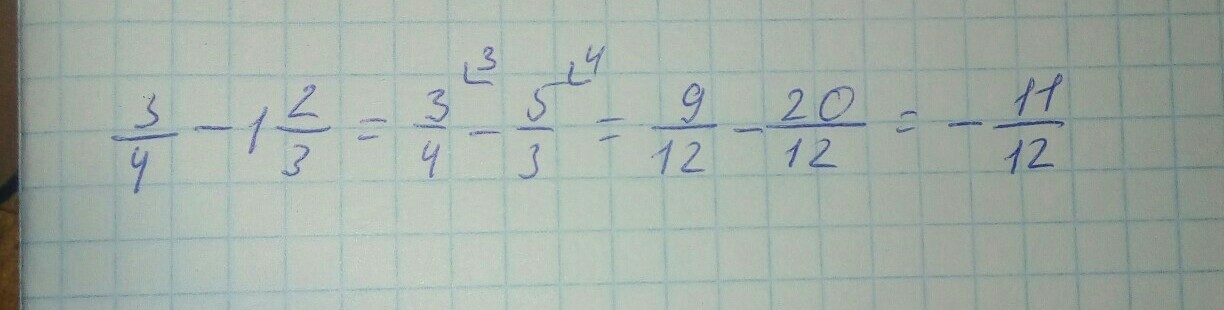 3/4 - 1 2/3 = 3/4 ⌞3 - 5/3 ⌞4 = 9/12 - 20/12 = - 11/12